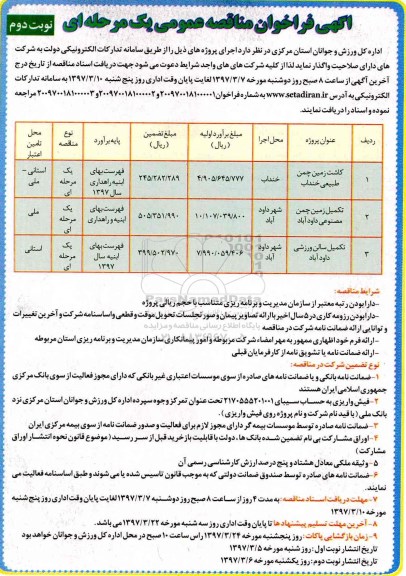 آگهی فراخوان مناقصه عمومی یک مرحله ای
نوبت دوم
اداره کل ورزش و جوانان استان مرکزی در نظر دارد اجرای پروژه های ذیل را از طریق سامانه تدارکات الکترونیکی دولت به شرکت
های دارای صلاحیت واگذار نماید لذا از کلیه شرکت های های واجد شرایط دعوت می شود جهت دریافت اسناد مناقصه از تاریخ درج
آخرین آگهی از ساعت ۸ صبح روز دوشنبه مورخه ۱۳۹۷/۳/۷ لغایت پایان وقت اداری روز پنج شنبه ۱۳۹۷/۳/۱۰ به سامانه تدارکات
الکترونیکی به آدرس www.setadiran.ir به شماره فراخوان مراجعه
نموده و اسناد را دریافت نمایند.
ردیف عنوان پروژه محل اجرا مبلغ برآورد اولیه (ریال) مبلغ تضمین (ریال) پایه برآورد نوع مناقصه محل تامین اعتبار
۱ کاشت زمین چمن طبیعی خنداب خنداب ۴/۹۰۵/۶۴۵/۷۷۷ ۲۴۵/۲۸۲/۲۸۹ فهرست بهای ابنیه راهداری سال ۱۳۹۷ یک مرحله ای استانی – ملی
۲ تکمیل زمین چمن مصنوعی داود آباد شهر داود آباد ۱۰/۱۰۷/۰۳۹/۸۰۰ ۵۰۵/۳۵۱/۹۹۰ فهرست بهای ابنیه و راهداری یک مرحله ای ملی
۳ تکمیل سالن ورزشی داود آباد شهر داود آباد ۷/۹۹۰/۰۵۹/۴۰۶ ۳۹۹/۵۰۲/۹۷۰ فهرست بهای ابنیه سال ۱۳۹۷ یک مرحله ای استانی
شرایط مناقصه:
-دارا بودن رتبه معتبر از سازمان مدیریت و برنامه ریزی متناسب با حجم ریالی پروژه
-دارا بودن رزومه کاری در ۵ سال اخیر با ارائه تصاویر پیمان و صورتجلسات تحویل موقت و قطعی و اساسنامه شرکت و آخرین تغییرات
و توانایی ارائه ضمانت نامه شرکت در مناقصه
-ارائه فرم خود اظهاری ممهور به مهر امضاء شرکت مربوطه و امور پیمانکاری سازمان مدیریت و برنامه ریزی استان مربوطه
-ارائه ضمانت نامه یا تشویق نامه از کارفرمایان قبلی
نوع تضمین شرکت در مناقصه:
۱– ضمانت نامه بانکی و یا ضمانت نامه های صادره از سوی موسسات اعتباری غیر بانکی که دارای مجوز فعالیت از سوی بانک مرکزی
جمهوری اسلامی ایران هستند
۲– فیش واریزی به حساب سیبای ۲۱۷۰۵۵۵۲۰۱۰۰۱ تحت عنوان تمرکز وجوه سپرده اداره کل ورزش و جوانان استان مرکزی نزد
بانک ملی (با قید نام شرکت و نام پروژه روی فیش واریزی).
۳– ضمانت نامه صادره توسط موسسات بیمه گر دارای مجوز لازم برای فعالیت و صدور ضمانت نامه از سوی بیمه مرکزی ایران
۴– اوراق مشارکت بی نام تضمین شده بانک ها، دولت با قابلیت بازخرید قبل از سر رسید (موضوع قانون نحوه انتشار اوراق
مشارکت)
۵– وثیقه ملکی معادل هشتاد و پنج درصد ارزش کارشناسی رسمی آن
۶– ضمانت نامه های صادره توسط صندوق ضمانت دولتی که به موجب قانون تاسیس شده یا می شوند و طبق اساسنامه فعالیت می
نمایند.
۷– مهلت دریافت اسناد مناقصه: به مدت ۴ روز از ساعت ۸ صبح روز دوشنبه مورخه ۱۳۹۷/۳/۷ لغایت پایان وقت اداری روز پنج شنبه
مورخه ۱۳۹۷/۳/۱۰
۸– آخرین مهلت تسلیم پیشنهادها تا پایان وقت اداری روز سه شنبه مورخه ۱۳۹۷/۳/۲۲ می باشد.
۹– زمان بازگشایی پاکات: روز پنجشنبه مورخه ۱۳۹۷/۳/۲۴ راس ساعت ۱۰ صبح در محل اداره کل ورزش و جوانان خواهد بود
تاریخ انتشار نوبت اول: روز شنبه مورخه ۱۳۹۷/۳/۵
تاریخ انتشار نوبت دوم: روز یکشنبه مورخه ۱۳۹۷/۳/۶